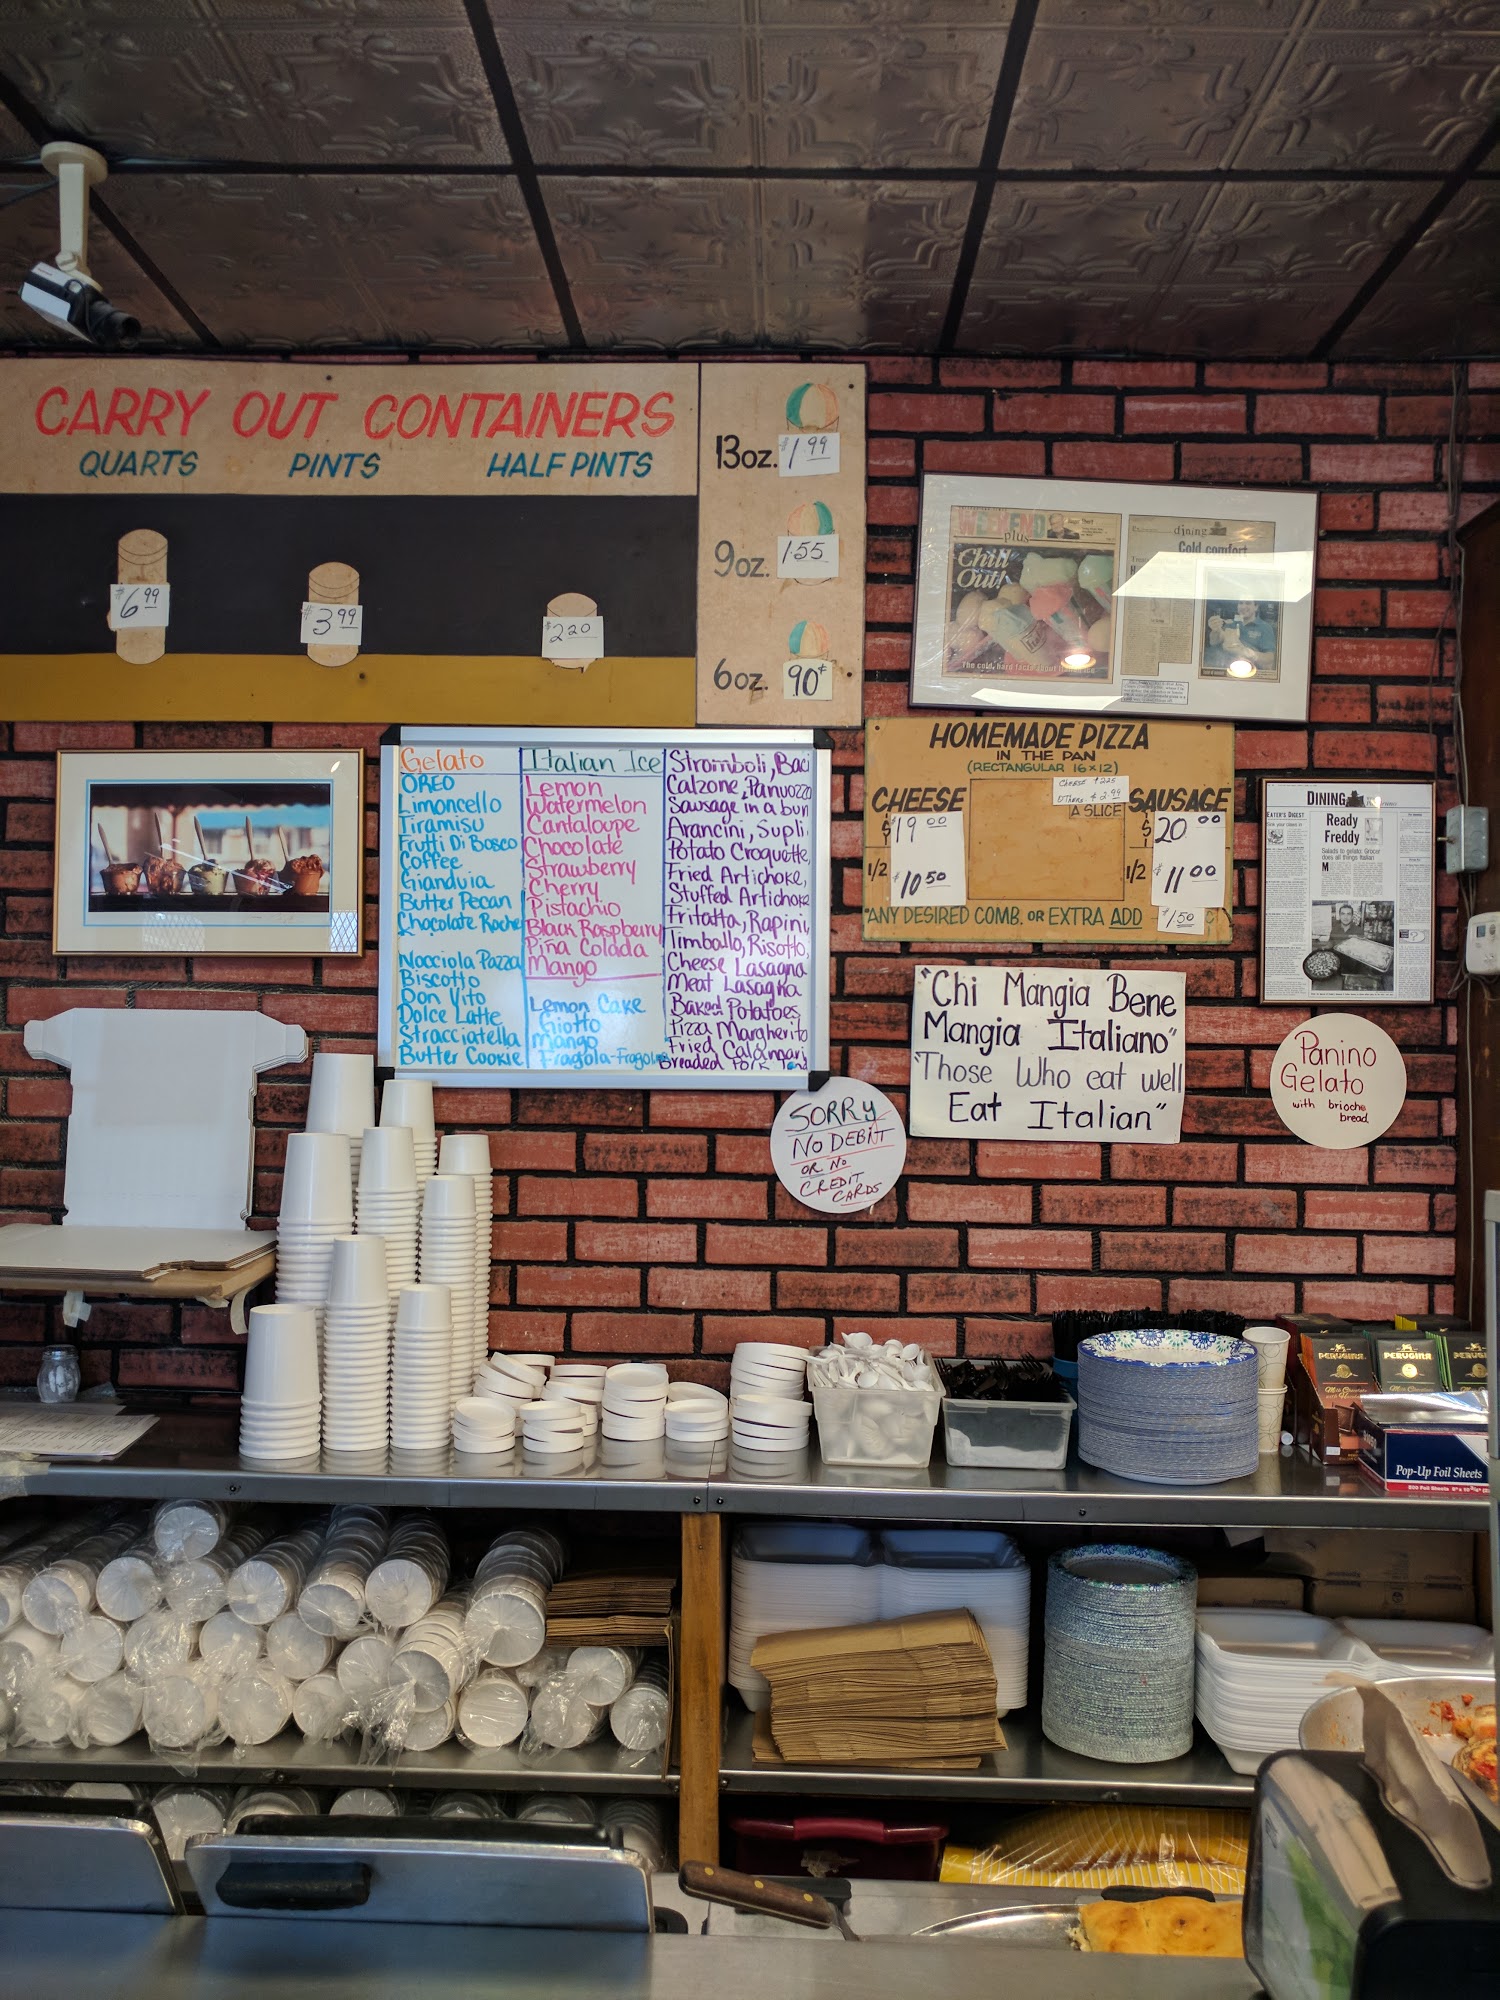 CARRY OUT CONTAINERS
QUARTS PINTS HALF PINTS
$6.99
$3.99
$2.20
13oz. $1.99
9oz. 1.55
6oz. 90¢
WEEKEND
plus
Chill
Out!
The cold, hard facts about
dining
Cold comfort
Gelato
OREO
Limoncello
Tiramisu
Frutti Di Bosco
Coffee
Gianduia
Butter Pecan
Chocolate Roche
Nocciola Pazza
Biscotto
Don Vito
Dolce Latte
Stracciatella
Butter Cookie
Italian Ice
Lemon
Watermelon
Cantaloupe
Chocolate
Strawberry
Cherry
Pistachio
Black Raspberry
Piña Colada
Mango
Lemon Cake
Giotto
Mango
Fragola-Fragola
Stromboli, Baci
Calzone, Panuozzo
Sausage in a bun
Arancini, Supli,
Potato Croquette,
Fried Artichoke,
Stuffed Artichoke
Frittatta, Rapini,
Timballo, Risotto,
Cheese Lasagna
Meat Lasagna
Baked Potatoes,
Pizza Margherito
Fried Calamari
Breaded Pork
HOMEMADE PIZZA
IN THE PAN
(RECTANGULAR 16x12)
CHEESE $2.25
OTHERS $2.99
A SLICE
CHEESE
$19.00
1/2 $10.50
SAUSAGE
$20.00
1/2 $11.00
"ANY DESIRED COMB. OR EXTRA ADD $1.50
DINING
EATER'S DIGEST
Ready
Freddy
Salads to gelato: Grocer
does all things Italian
"Chi Mangia Bene
Mangia Italiano"
"Those Who eat well
Eat Italian"
Panino
Gelato
with brioche
bread
SORRY
NO DEBIT
OR NO
CREDIT
CARDS
PERUGINA PERUGINA PERUGINA
Pop-Up Foil Sheets